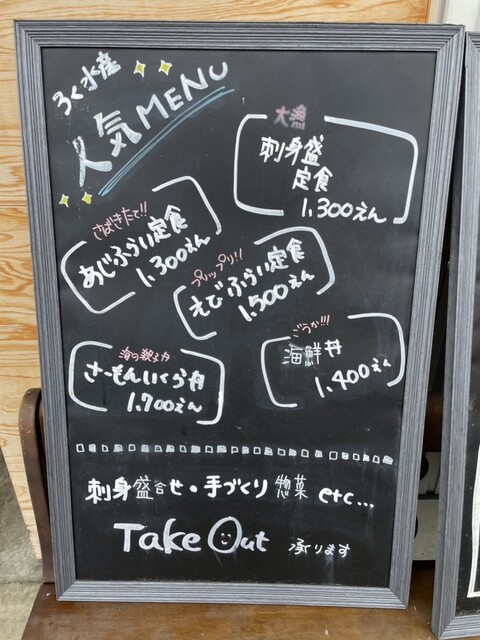 ろく水産
人気MENU
大漁
刺身盛
定食
1,300えん
さばきたて!!
あじふらい定食
1,300えん
プリップリ!!
えびふらい定食
1,500えん
ごうか!!!
海鮮丼
1,400えん
海の親子丼
さーもんいくら丼
1,700えん
刺身盛合せ・手づくり惣菜 etc...
Take Out 承ります